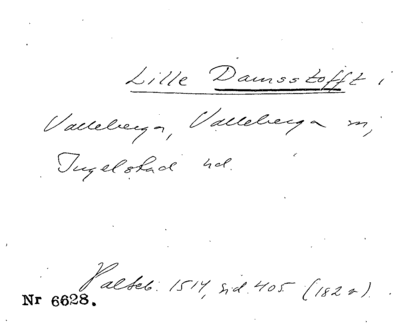 Lille Damsstofft i
Valleberga, Valleberga sn,
Ingelstad hd.
Palteb. 1514, sid. 405 (182 r).
Nr 6628.